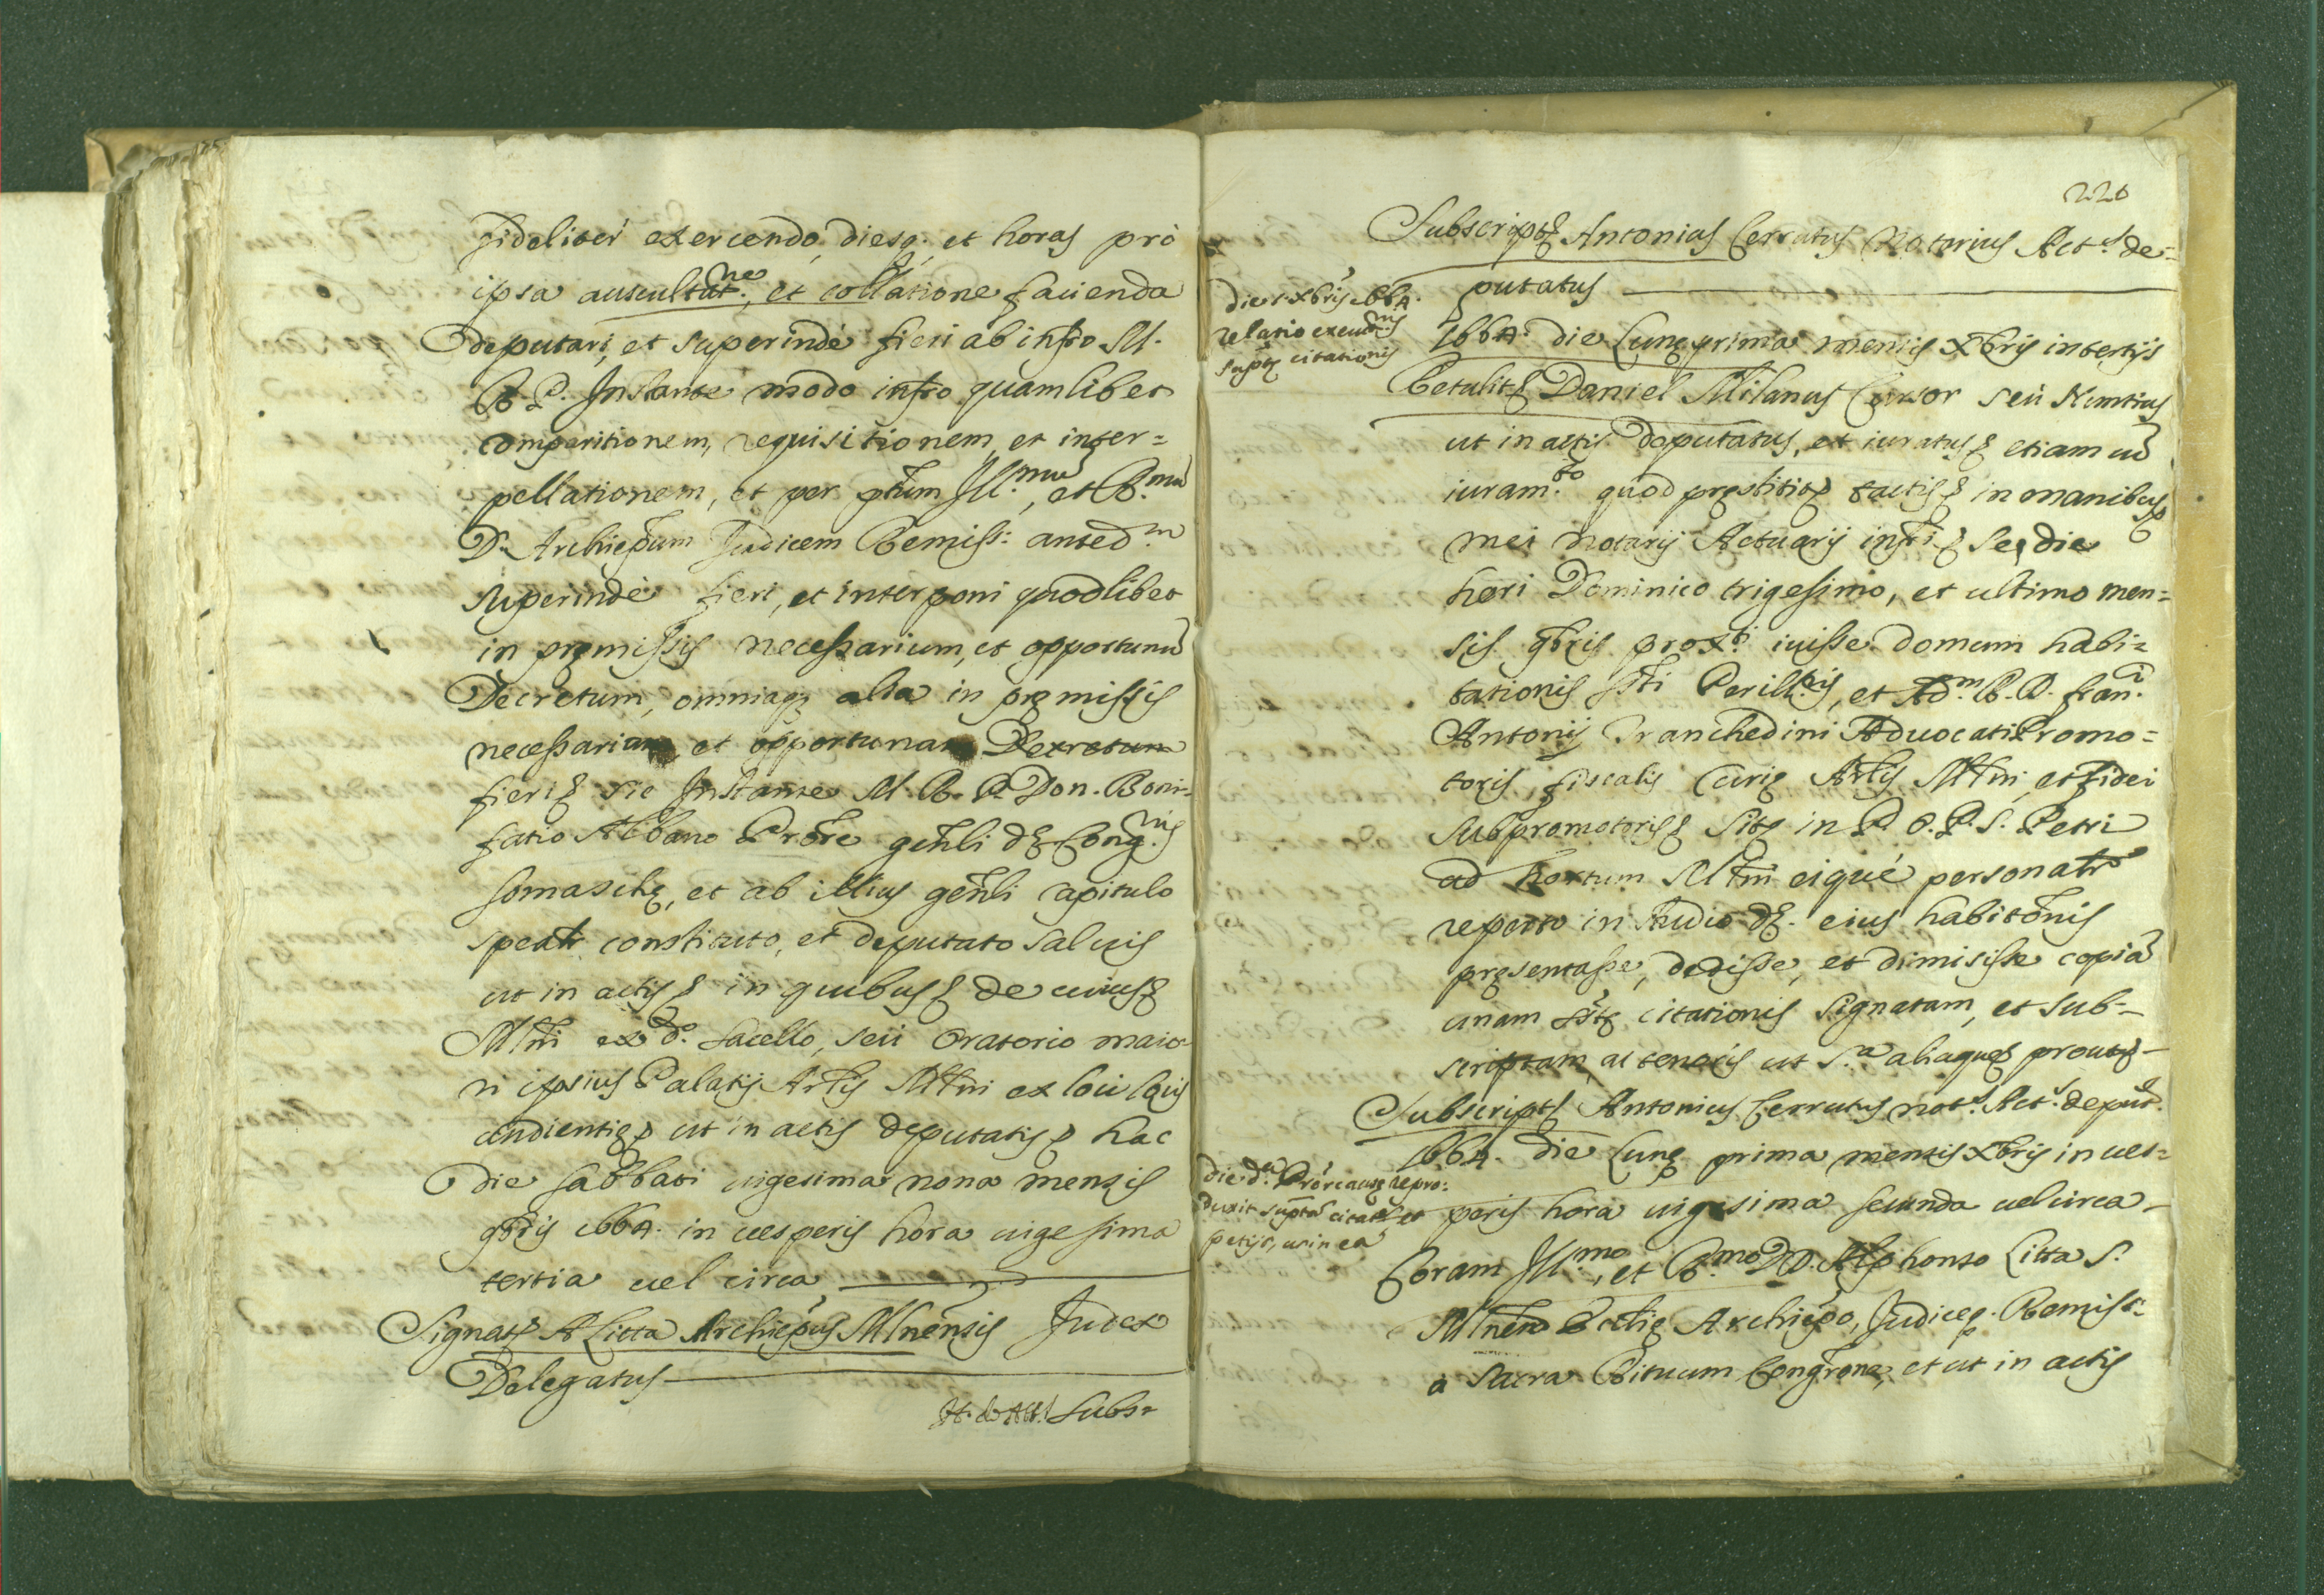 fideliter exercendo, diesq. et horas prò
ipsa auscultat.ne, et collatione facienda
deputari, et superindè fieri ab infro M.
R. P. Instante modo infro quamlibet
comparitionem, requisitionem, et inter=
pellationem, et per ptum Ill.mu, et R.mu
D. Archiepum Judicem Remiss: anted.m
superindè fieri, et interponi quodlibet
in premissis necessarium, et opportunu
Decretum, omniaq alia in premissis
necessaria, et opportuna Decretum
fieri sic Instante M. R. P. Don. Boni=
fatio Albano Prore genli de Cong.nis
somasche, et ab illius genli capitulo
spealr constituto, et deputato salvis
ut in actis in quibus de cuius
Mlni ex d.o sacello, seù oratorio maio=
ri ipsius Palatij Arlis Mlni ex loci lais
audientie ut in actis deputatis hac
die sabbati uigesima nona mensis
9bris 1664. in uesperis hora uigesima
tertia uel circa
Signat A Litta Archiepus Mlnensis Judex
Delegatus
Subs=
220
Subscript Antonius Cerrutus Notarius Act.s de=
putatus
die 1. xbris 1664.
relatio execut.nis
supte citationis
1664. die Lune prima mensis Xbris in tertijs
Retulit Daniel Milanus Cursor seù Nuntius
ut in actis deputatus, et iuratus etiam cu
iuram.to quod prestitit tactis in manibus
mei Notarij Actuarij infri se, die
heri Dominico trigesimo, et ultimo men=
sis 9bris prox.i iuisse domum habi=
tationis sti Perill.ris, et Ad.m R. D. fran.ci
Antonij Tranchedini Aduocati Promo=
toris, fiscalis Curie Arlis Mlni, et fidei
subpromotoris site in P. O. P. S. Petri
ad hortum Mlni eiquè personalr
reperto in studio de. eius habitonis
presentasse, dedisse, et dimisisse copia
unam ste citationis signatam, et sub=
scriptam, ac tenoris ut s.a aliaque prout
Subscript Antonius Cerrutus not.s Act.s deput.
1664. die Lune prima mensis Xbris in ues=
die d.a Pror cause repro:
duxit supta citat et
petijt, ut in ea
peris hora uigesima secunda uel circa
Coram Ill.mo, et R.mo DD. Alphonso Litta S.
Mlnen Eclie Archiepo, Judice. Remiss:
a Sacra Rituum Congrone, et ut in actis